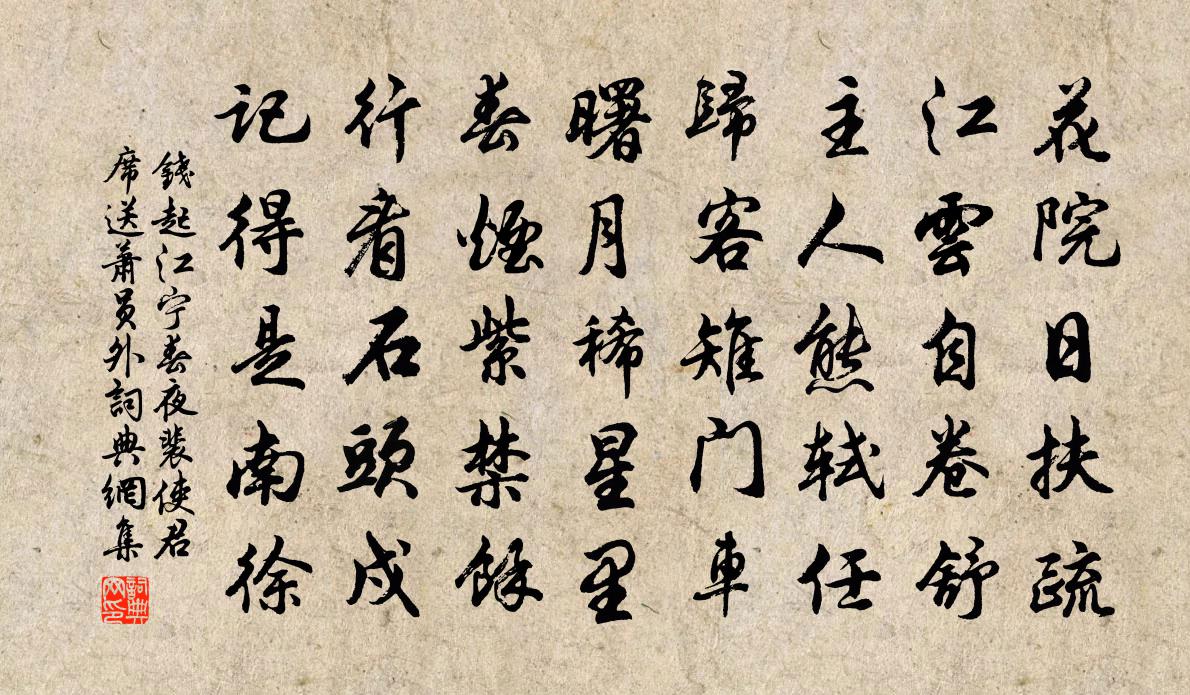 花院日扶疏
江雲自卷舒
主人熊軾任
歸客雉門車
曙月稀星里
春煙紫禁餘
行看石頭戍
記得是南徐
錢起江宁春夜裴使君
席送蕭員外詞典網集
詞典
网印